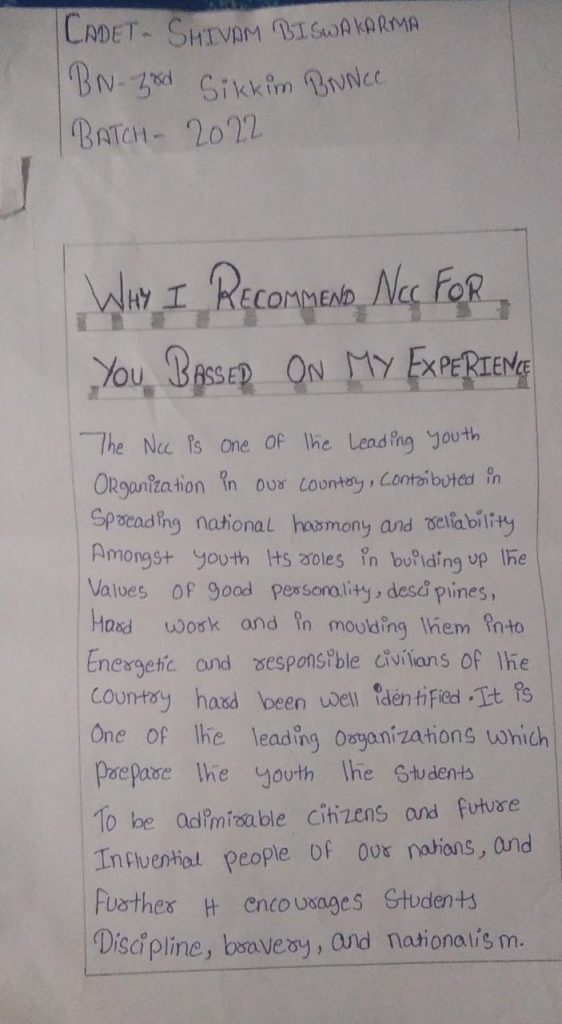 CADET- SHIVAM BISWAKARMA
BN- 3rd Sikkim BNNCC
BATCH- 2022
WHY I RECOMMEND NCC FOR
YOU BASSED ON MY EXPERIENCE
The NCC is one of the Leading youth
ORganization in our country, Contributed in
Spreading national harmony and reliability
Amongst youth Its roles in building up the
Values of good personality, desciplines,
Hard work and in moulding them into
Energetic and responsible civilians of the
Country hard been well identified. It is
One of the leading organizations which
prepare the youth the Students
To be adimirable citizens and future
Influential people of our nations, and
further It encourages Students
Discipline, bravery, and nationalism.